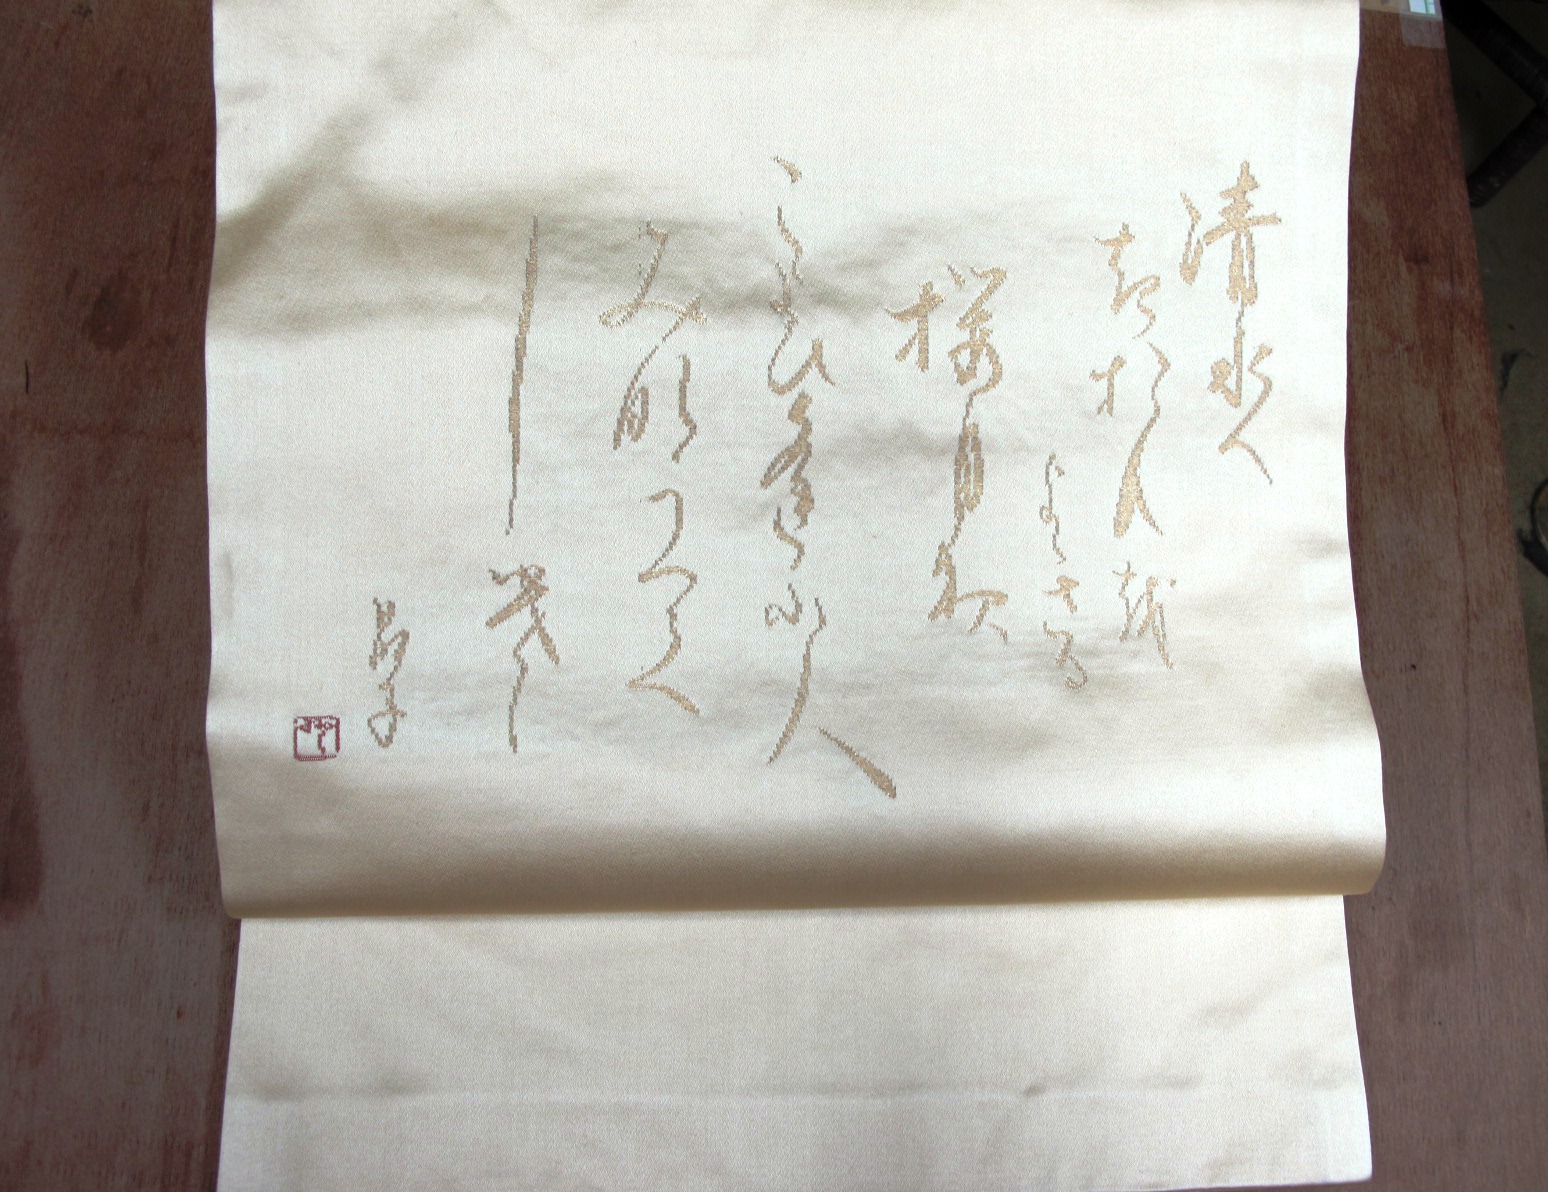 清水へ
祇園を
よぎる
桜月夜
こよひ逢ふ人
みなうつく
しき
晶子